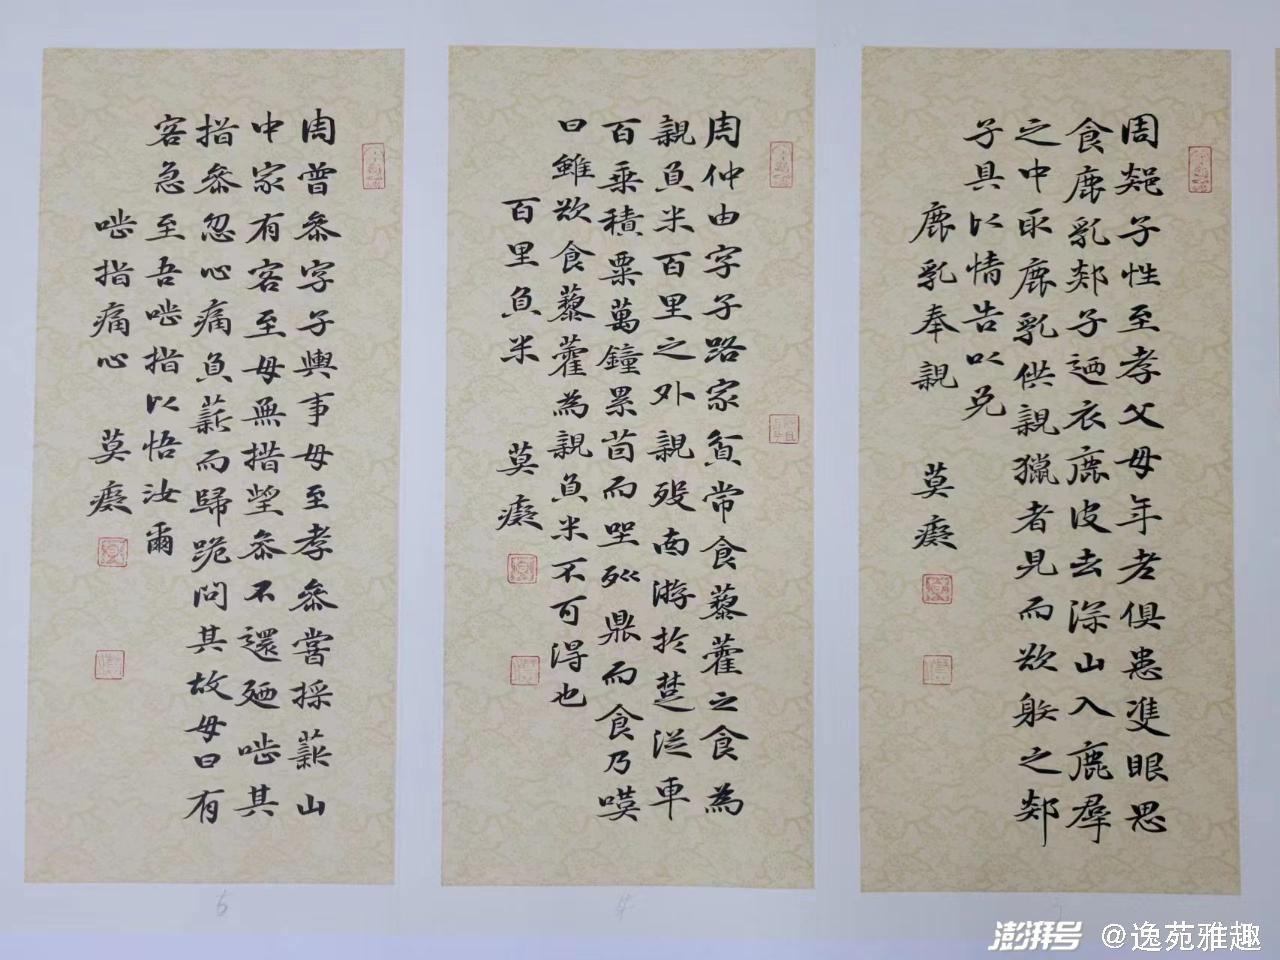 周郯子性至孝父母年老俱患雙眼思
食鹿乳郯子迺衣鹿皮去深山入鹿群
之中取鹿乳供親獵者見而欲射之郯
子具以情告以免
鹿乳奉親 莫癡
周仲由字子路家貧常食藜藿之食為
親負米百里之外親歿南游於楚從車
百乘積粟萬鐘累茵而坐列鼎而食乃嘆
曰雖欲食藜藿為親負米不可得也
百里負米 莫癡
周曾參字子輿事母至孝參嘗採薪山
中家有客至母無措望參不還廼嚙其
指參忽心痛負薪而歸跪問其故母曰有
客急至吾嚙指以悟汝爾
嚙指痛心 莫癡
5
4
3
澎湃号 @逸苑雅趣